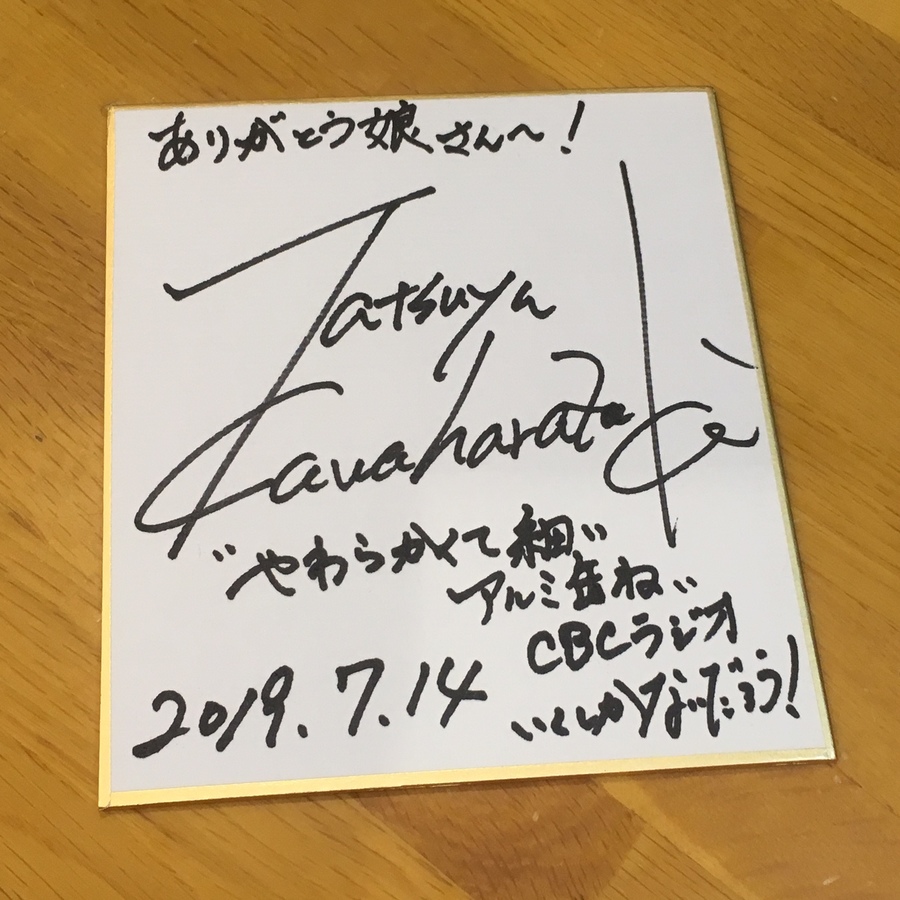 ありがとう娘さん〜!
Tatsuya
Kawaharatake
"やわらかくて細"
アルミ缶ね"
CBCラジオ
2019.7.14
いくしかないだろう!